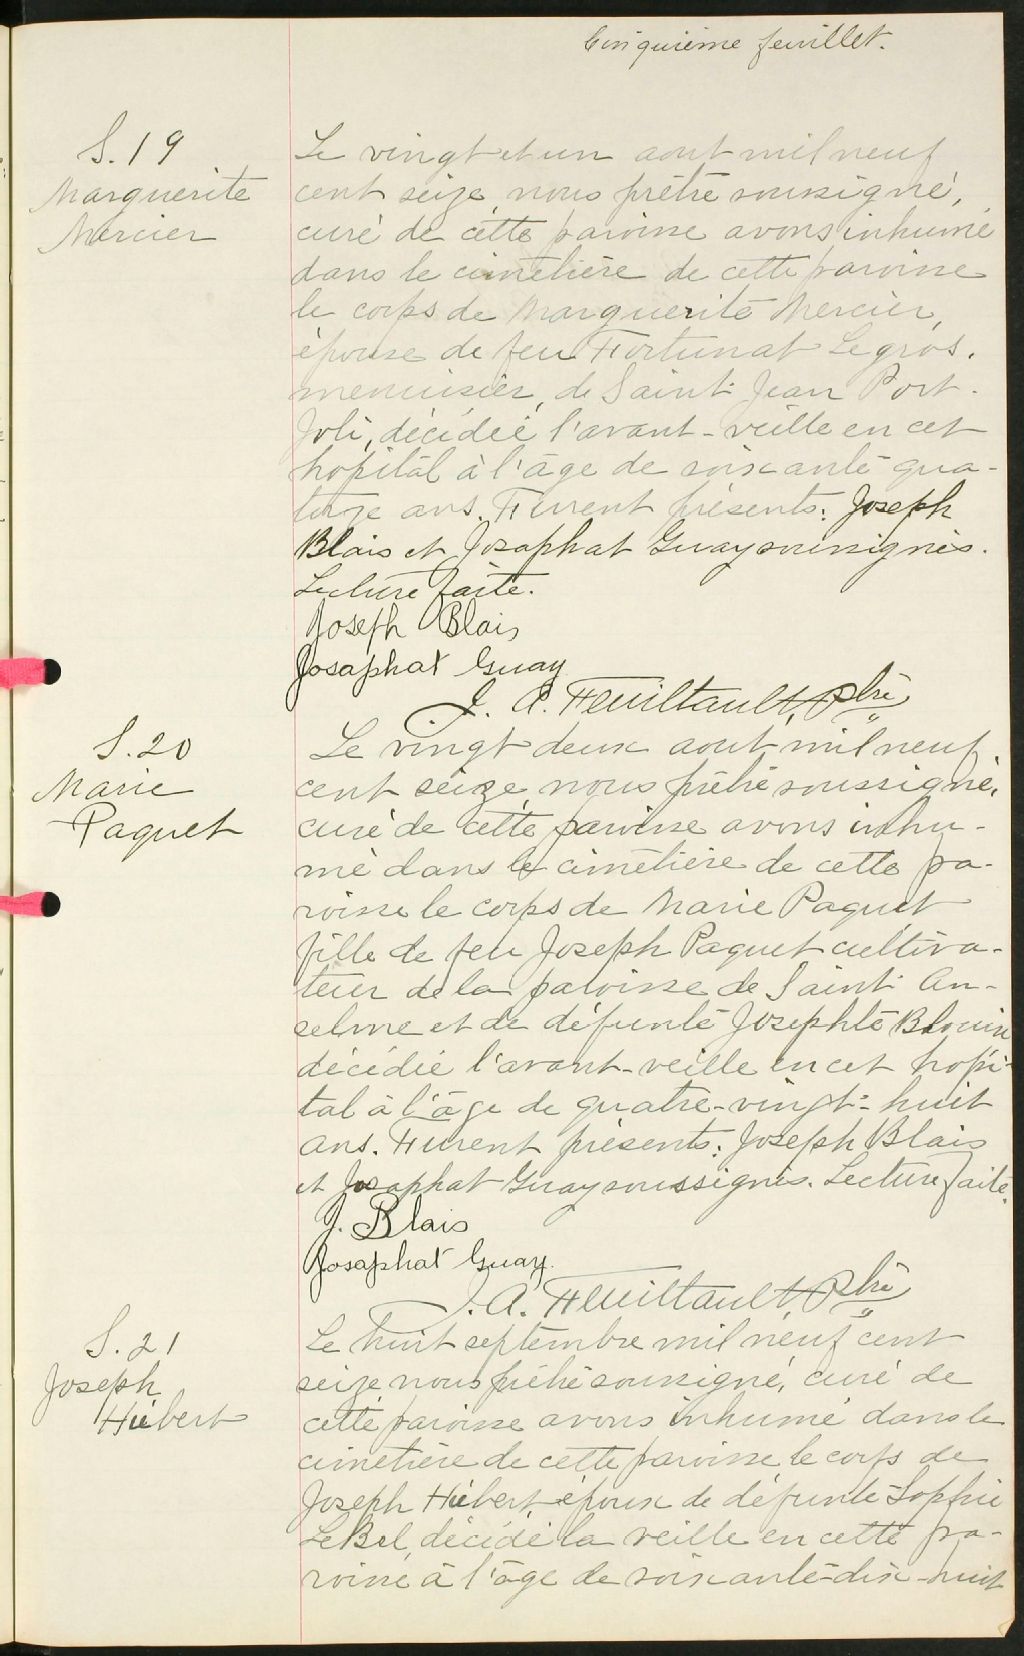 Cinquième feuillet.
S. 19
Marguerite
Mercier
Le vingt et un aout mil neuf
cent seize, nous prêtre soussigné,
curé de cette paroisse avons inhumé
dans le cimetière de cette paroisse
le corps de Marguerite Mercier,
épouse de feu Fortunat Legros,
menuisier, de Saint Jean Port-
Joli, décédée l'avant-veille en cet
hopital à l'âge de soixante-qua-
torze ans. Furent présents: Joseph
Blais et Josaphat Guay soussignés.
Lecture faite.
Joseph Blais
Josaphat Guay
J. A. Feuiltault, Ptre
S. 20
Marie
Paquet
Le vingt deux aout mil neuf
cent seize, nous prêtre soussigné,
curé de cette paroisse avons inhu-
mé dans le cimetière de cette pa-
roisse le corps de Marie Paquet
fille de feu Joseph Paquet cultiva-
teur de la paroisse de Saint An-
selme et de défunte Josephte Blouin
décédée l'avant-veille en cet hopi-
tal à l'âge de quatre-vingt-huit
ans. Furent présents: Joseph Blais
et Josaphat Guay soussignés. Lecture faite.
J. Blais
Josaphat Guay.
J. A. Feuiltault, Ptre
S. 21
Joseph
Hébert
Le huit septembre mil neuf cent
seize nous prêtre soussigné, curé de
cette paroisse avons inhumé dans le
cimetière de cette paroisse le corps de
Joseph Hébert époux de défunte Sophie
LeBel, décédé la veille en cette pa-
roisse à l'âge de soixante-dix-huit